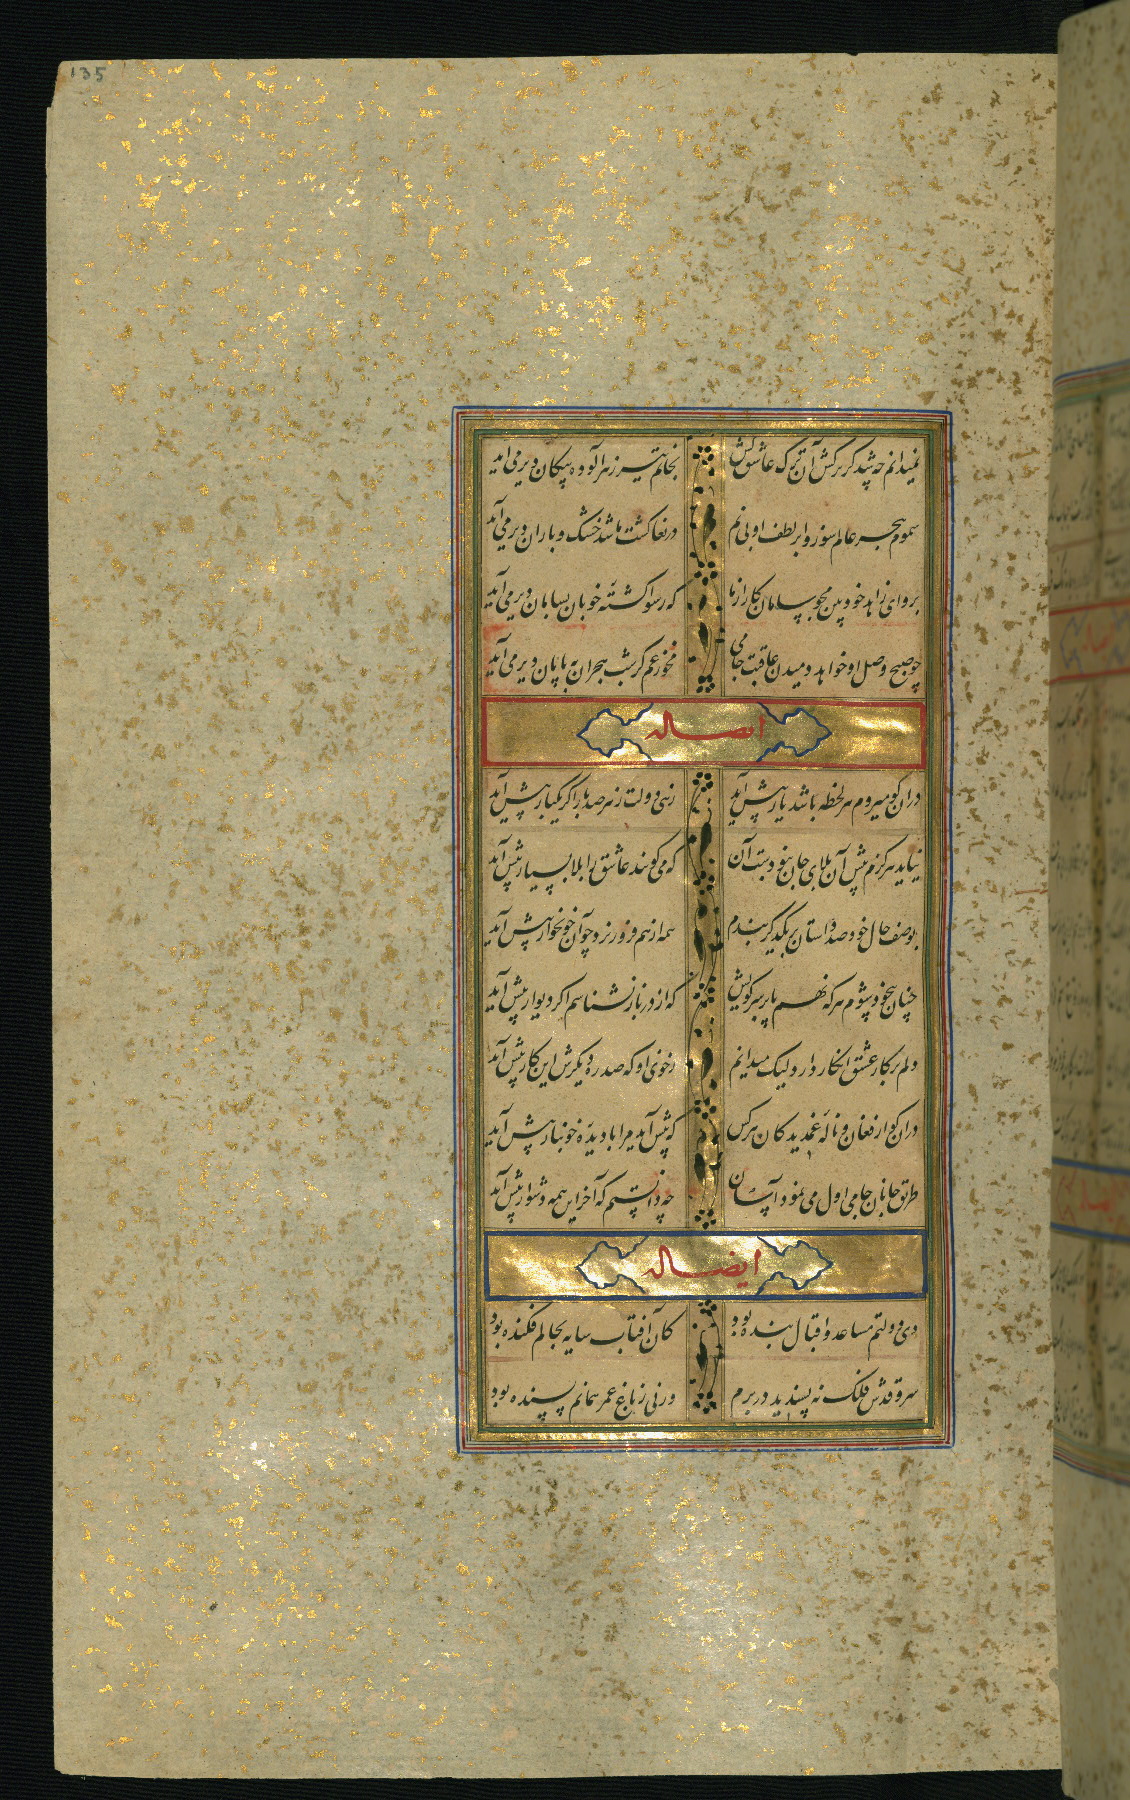 135
نمیدانم چه شد کز ترکش آن ترک عاشق کش بجانم تیر زهرآلوده پیکان دیر می آید
سموم هجر عالم سوز و ابر لطف او بی نم دریغا کشت ما شد خشک و باران دیر می آید
برو ای زاهد خودبین مجو سامان کار از ما که رسوا گشته خوبان بسامان دیر می آید
چو صبح وصل او خواهد دمیدن عاقبت جامی مخور غم گر شب هجران به پایان دیر می آید
ایضا له
دران کو میروم هر لحظه باشد یار پیش آید زهی دولت ز هر صد بار اگر یکبار پیش آید
نیاید هرگزم پیش آن بلای جان بنودست آن که می گویند عاشق را بلا بسیار پیش آید
بوصف حال خود صد داستان بر یکدگر بندم همه از هم فرو ریزد چو آن خونخوار پیش آید
چنان بیخود شوم هر گه نهم پا بر سر کویش که از در باز نشناسم اگر دیوار پیش آید
دلم بر کار عشق انکار دارد لیک میدانم ز خوی او که صد ره دیگرش این کار پیش آید
دران کو از فغان و ناله غمدیدگان هر کس که پیش آید مرا با دیده خونبار پیش آید
طریق جانان جامی اول می نمود آسان چه دانستم که آخر این همه دشوار پیش آید
ایضا له
دی دولتم مساعد و اقبال بنده بود کان آفتاب سایه بحالم فکنده بود
سرو قدش فلک نه پسندید در برم ورنی ز باغ عمر همانم پسنده بود